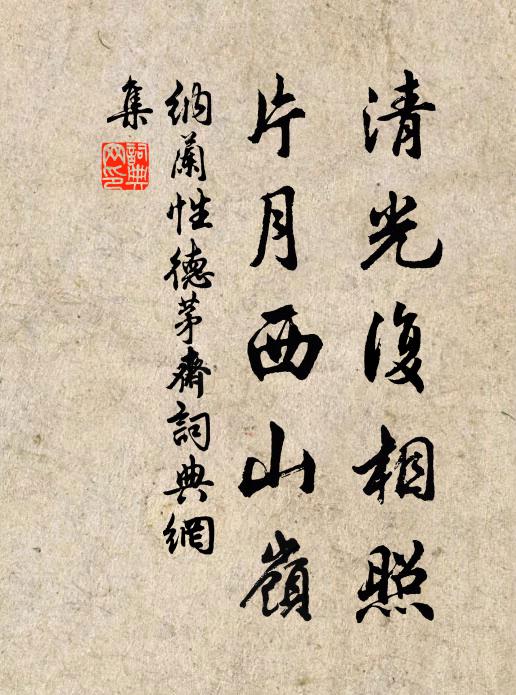 清光復相照
片月西山嶺
納蘭性德茅齋詞典網
集
詞典網印